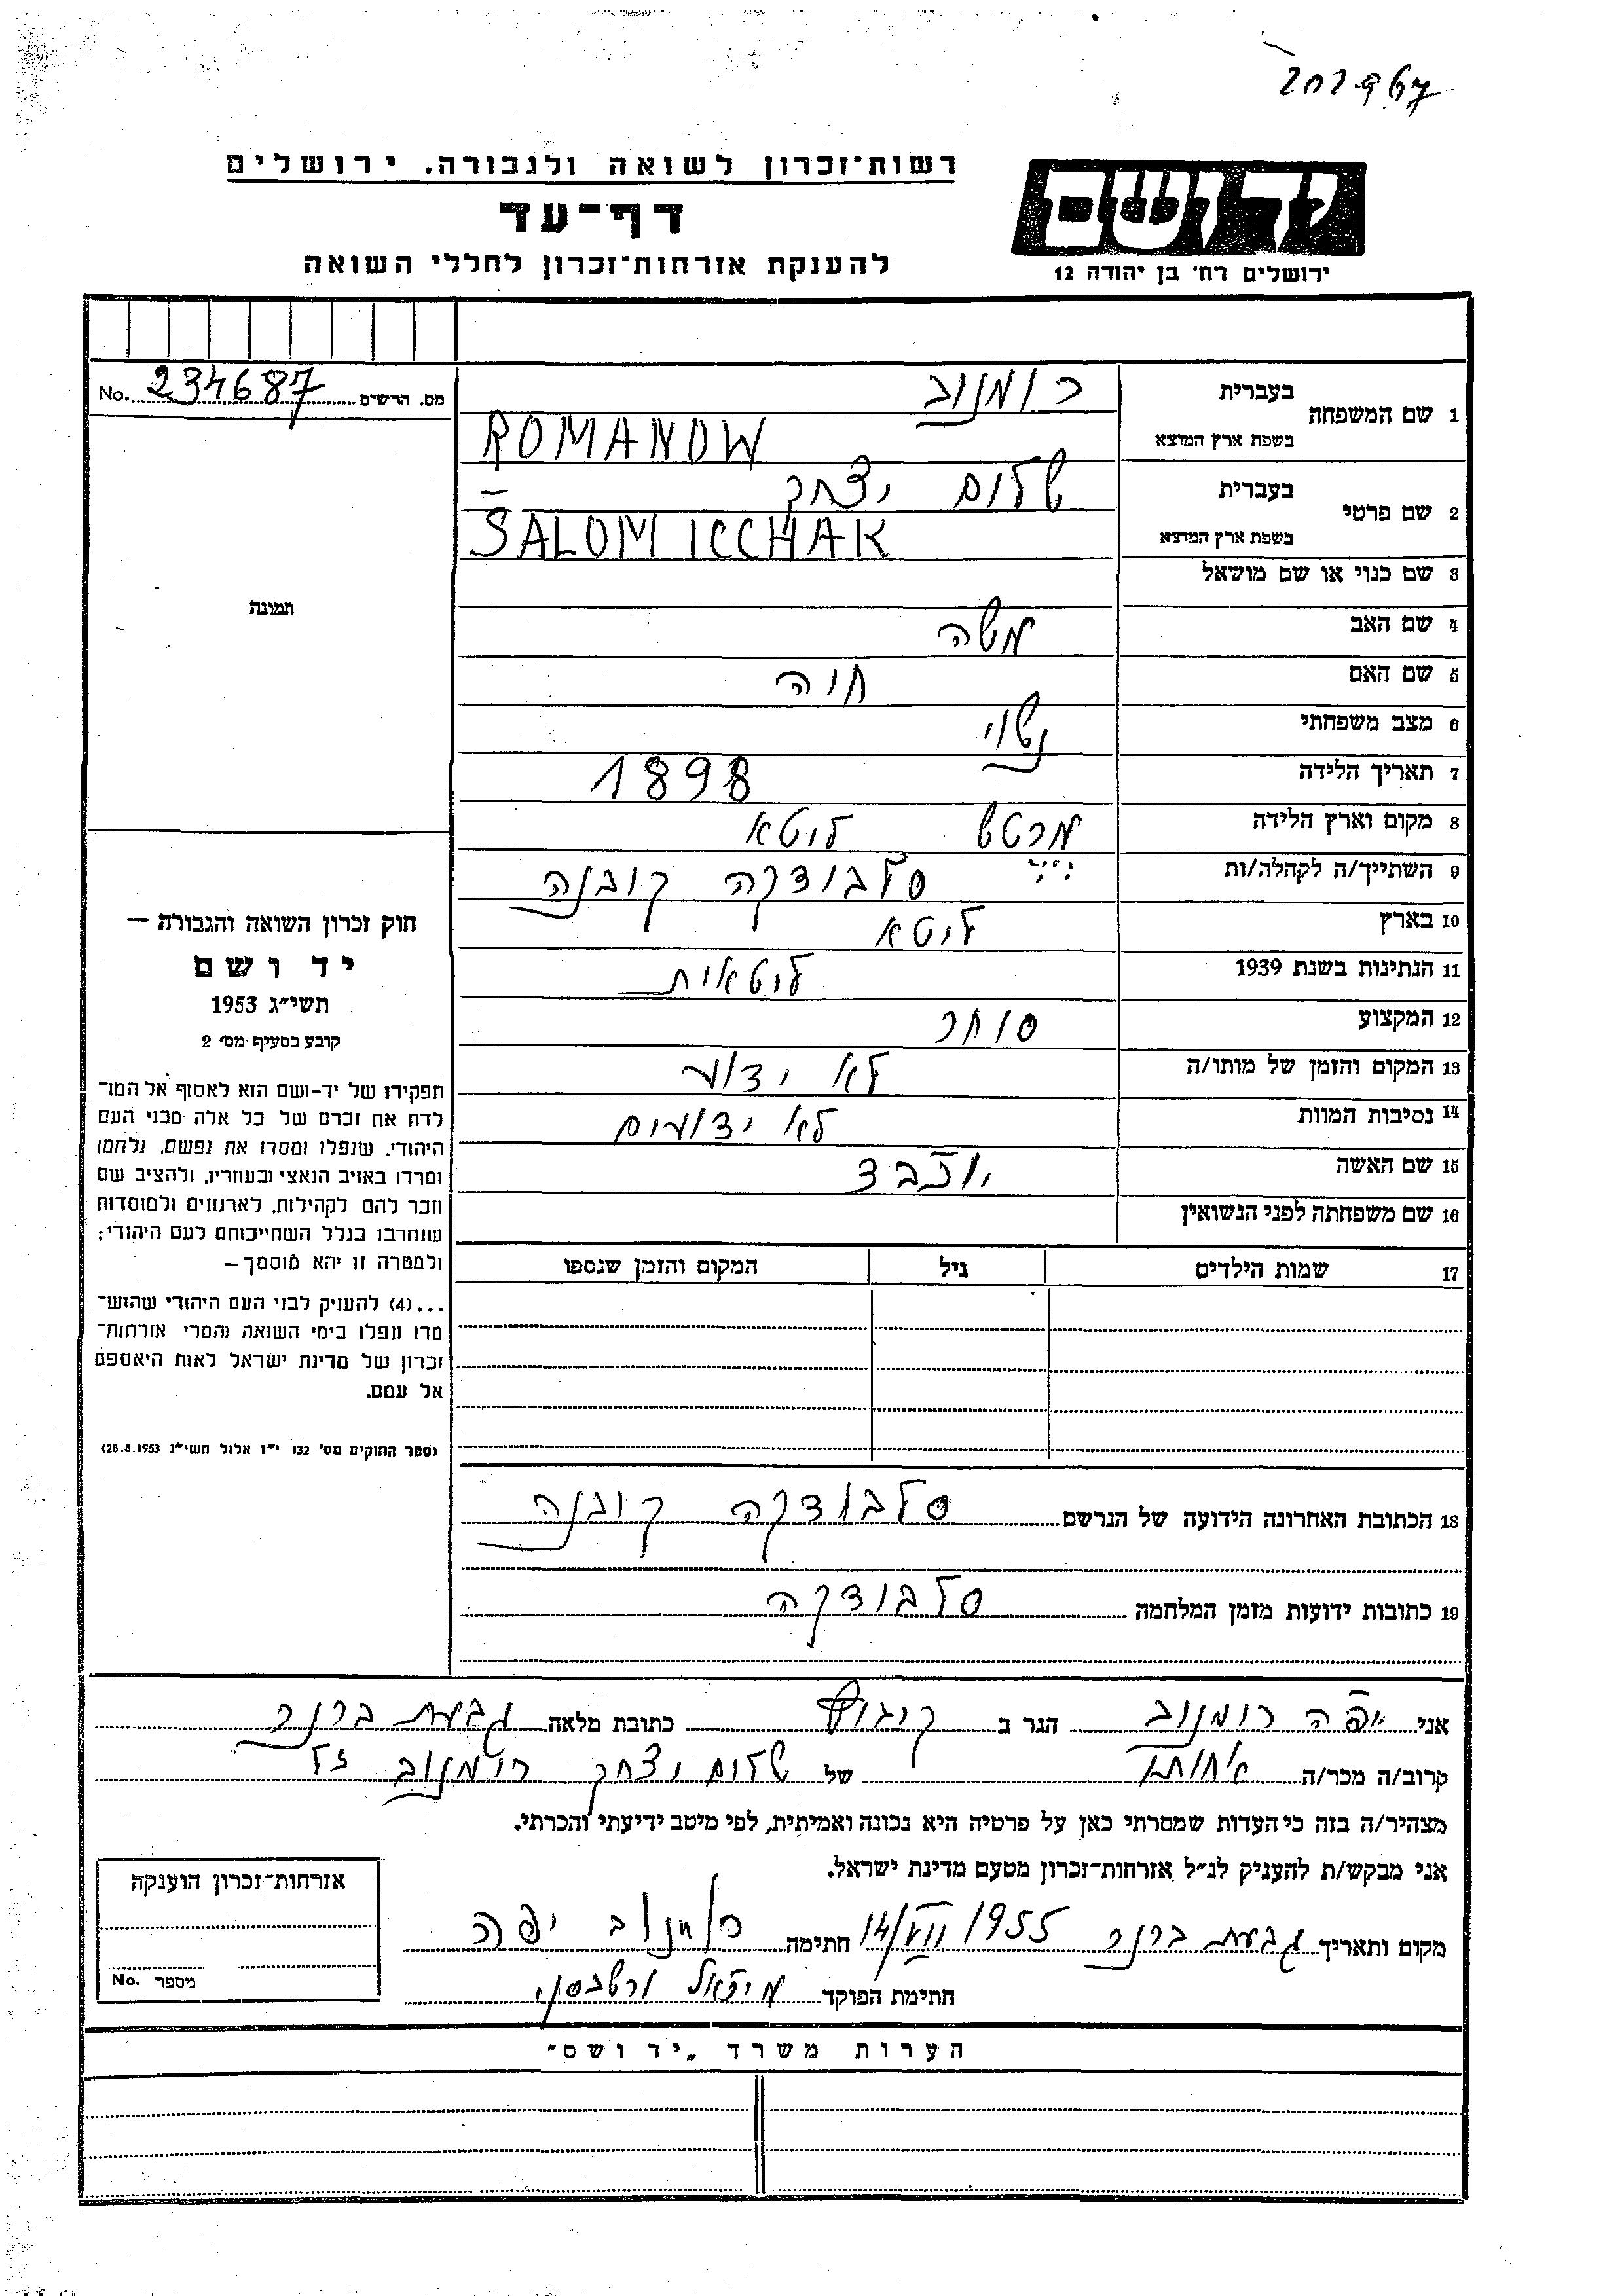 רשות־זכרון לשואה ולגבורה, ירושלים
דף־עד
להענקת אזרחות־זכרון לחללי השואה
יד ושם
ירושלים רח׳ בן יהודה 12
1 שם המשפחה
בעברית רומנוב
בשפת ארץ המוצא ROMANOW
מס. הרשים No. 234687
2 שם פרטי
בעברית שלום יצחק
בשפת ארץ המוצא ŠALOM ICCHAK
3 שם כנוי או שם מושאל
תמונה
4 שם האב משה
5 שם האם חוה
6 מצב משפחתי נשוי
7 תאריך הלידה 1898
8 מקום וארץ הלידה מרטש ליטא
9 השתייך/ה לקהלה/ות סלבודקה קובנה
10 בארץ ליטא
11 הנתינות בשנת 1939 ליטאית
12 המקצוע סוחר
13 המקום והזמן של מותו/ה לא ידוע
14 נסיבות המוות לא ידועים
15 שם האשה יוכבד
16 שם משפחתה לפני הנשואין
17 שמות הילדים גיל המקום והזמן שנספו
חוק זכרון השואה והגבורה –
יד ושם
תשי״ג 1953
קובע בסעיף מס׳ 2
תפקידו של יד-ושם הוא לאסוף אל המו־
לדת את זכרם של כל אלה מבני העם
היהודי, שנפלו ומסרו את נפשם, נלחמו
ומרדו באויב הנאצי ובעוזריו, ולהציב שם
וזכר להם לקהילות, לארגונים ולמוסדות
שנחרבו בגלל השתייכותם לעם היהודי;
ולמטרה זו יהא מוסמך –
...(4) להעניק לבני העם היהודי שהוש־
מדו ונפלו בימי השואה והמרי אזרחות־
זכרון של מדינת ישראל לאות היאספם
אל עמם.
(ספר החוקים מס׳ 132 י״ז אלול תשי״ג 28.8.1953)
18 הכתובת האחרונה הידועה של הנרשם סלבודקה קובנה
19 כתובות ידועות מזמן המלחמה סלבודקה
אני יפה רומנוב הגר ב קיבוץ כתובת מלאה גבעת ברנר
קרוב/ה מכר/ה אחותו של שלום יצחק רומנוב ז״ל
מצהיר/ה בזה כי העדות שמסרתי כאן על פרטיה היא נכונה ואמיתית, לפי מיטב ידיעתי והכרתי.
אני מבקש/ת להעניק לנ״ל אזרחות־זכרון מטעם מדינת ישראל.
מקום ותאריך גבעת ברנר 14/VII 1955 חתימה רומנוב יפה
חתימת הפוקד מיכאל
אזרחות־זכרון הוענקה
מספר No.
הערות משרד „יד ושם״